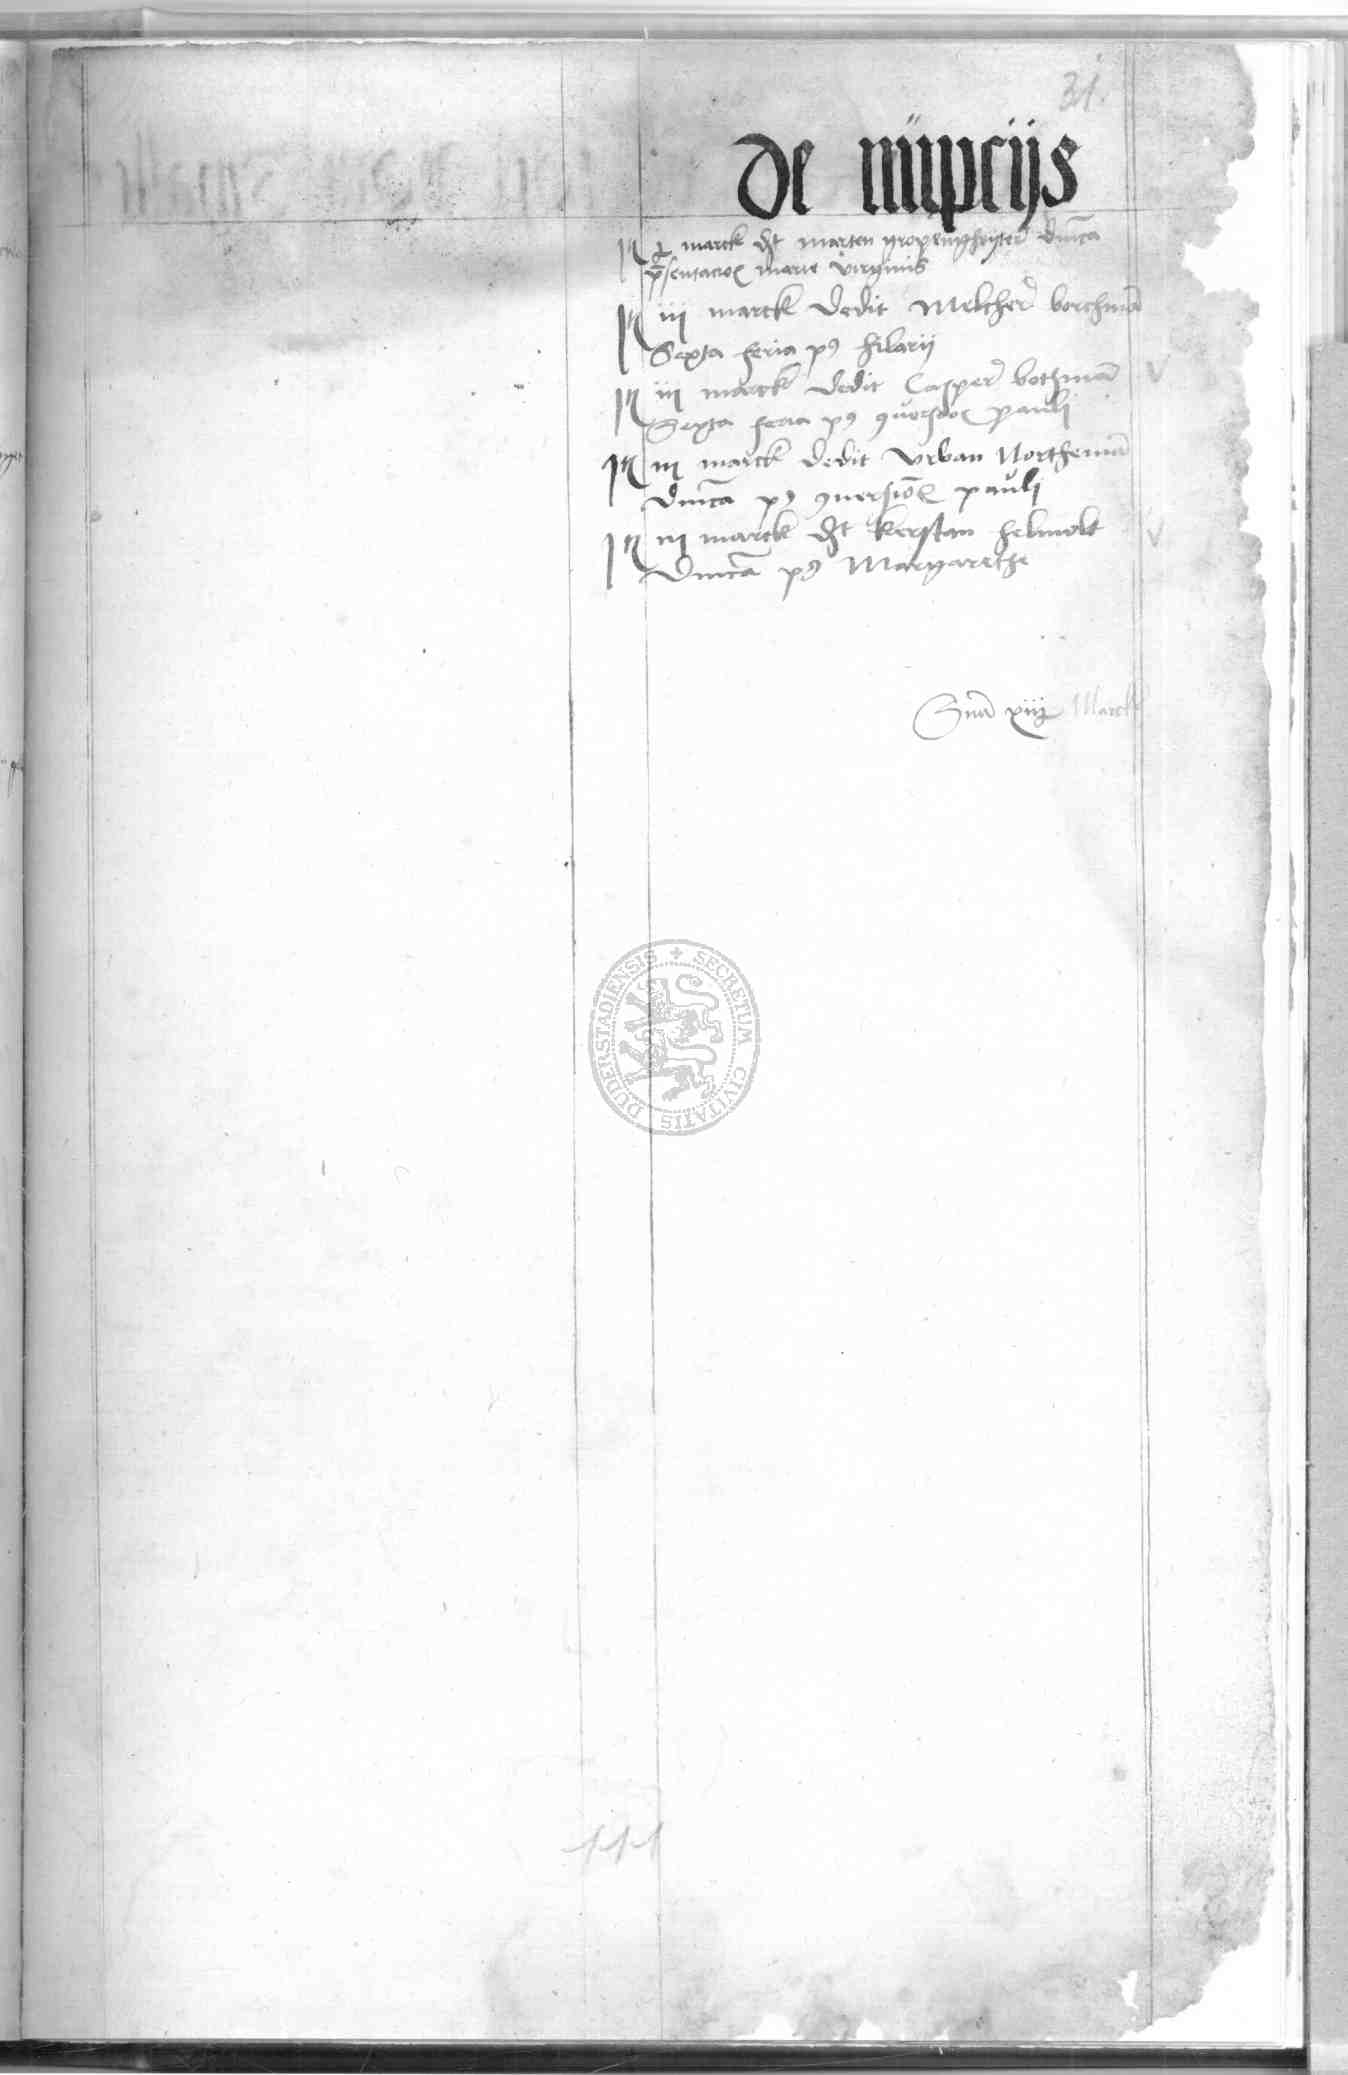 31.
De nupcijs
It j marck dt marten gropengheyter dnica
pntacioe marie virginis
It iij marck dedit Melcher borchma
Sexta feria p9 hilarij
It iij marck dedit Casper bothma
Sexta feria p9 9uersioe pauli
It iij marck dedit vrban Northema
dnica p9 9uersioe pauli
It iij marck dt kerstan helmolt
Dnica p9 Margarethe
Sma xiij Marck
SECRETUM CIVITATIS DUDERSTADIENSIS
111